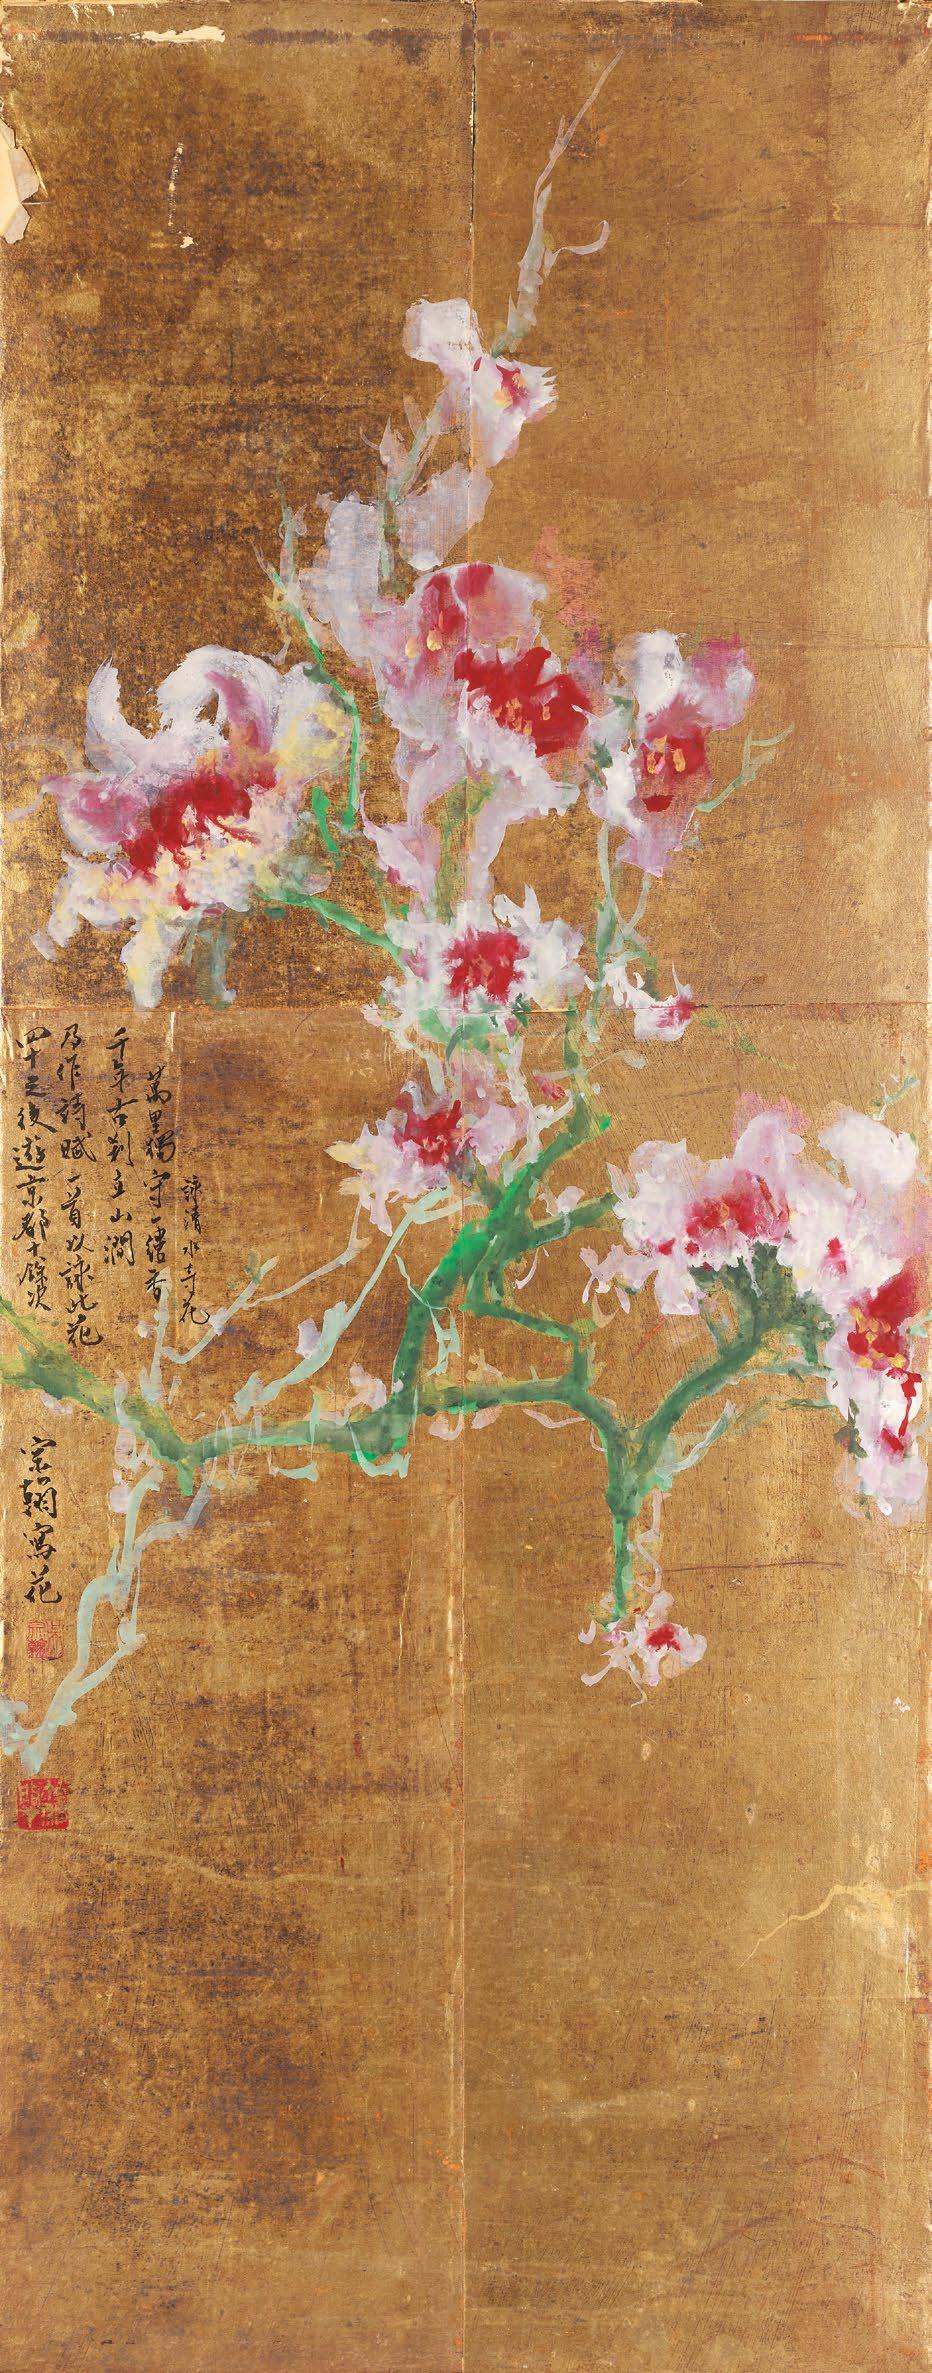 詠清水寺花
萬里獨守一縷香
千年古刹立山澗
乃作詩賦一首以詠此花
四十之後遊京都十餘次
宗翰寫花